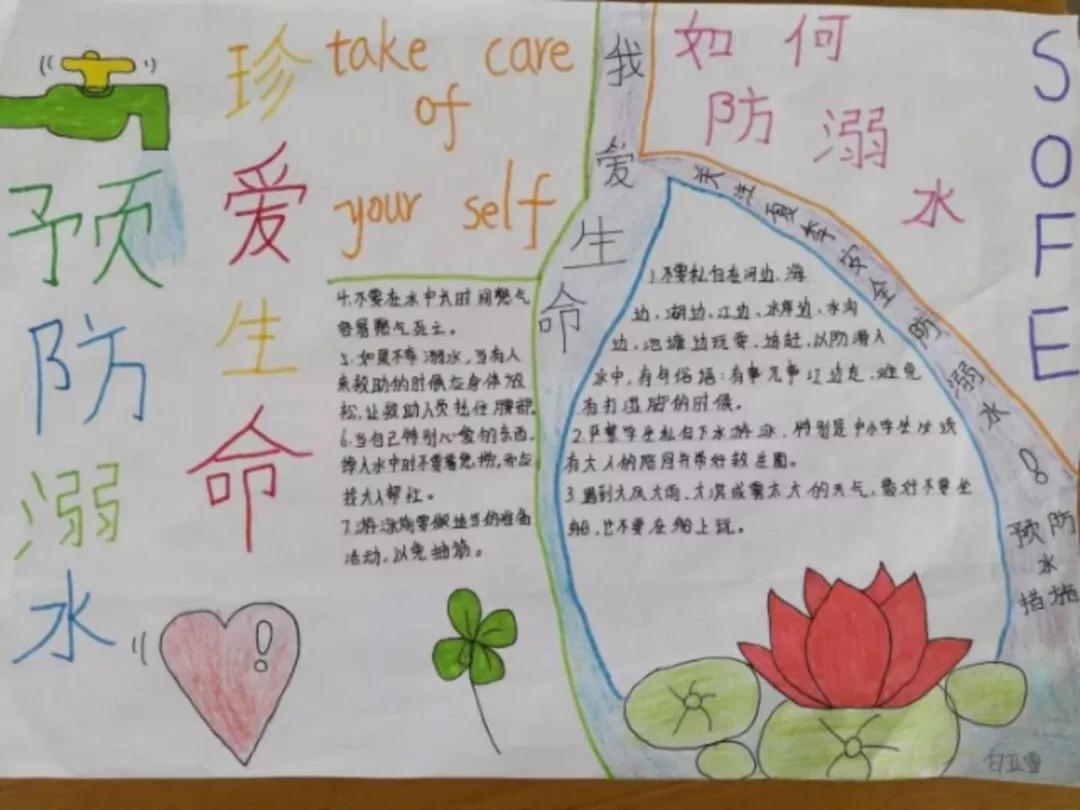 预防溺水
珍爱生命
take care
of
your self
4.不要在水中长时间憋气
容易憋气死亡。
5.如果不幸溺水,当有人
来救助的时候应身体放
松,让救助人员托住腰部。
6.当自己特别心爱的东西,
掉入水中时不要着急捞,而应
找大人帮忙。
7.游泳前要做适当的准备
活动,以免抽筋。
我爱生命
如何
防溺
水
SOFE
关注夏季安全防溺水!
1.不要私自在河边、海
边、湖边、江边、水库边、水沟
边、池塘边玩耍、追赶,以防滑入
水中,有句俗语:有事无事江边走,难免
有打湿脚的时候。
2.严禁学生私自下水游泳,特别是中小学生必须
有大人的陪同并带好救生圈。
3.遇到大风大雨、大浪或雾太大的天气,最好不要坐
船,也不要在船上玩。
预防
水
措施